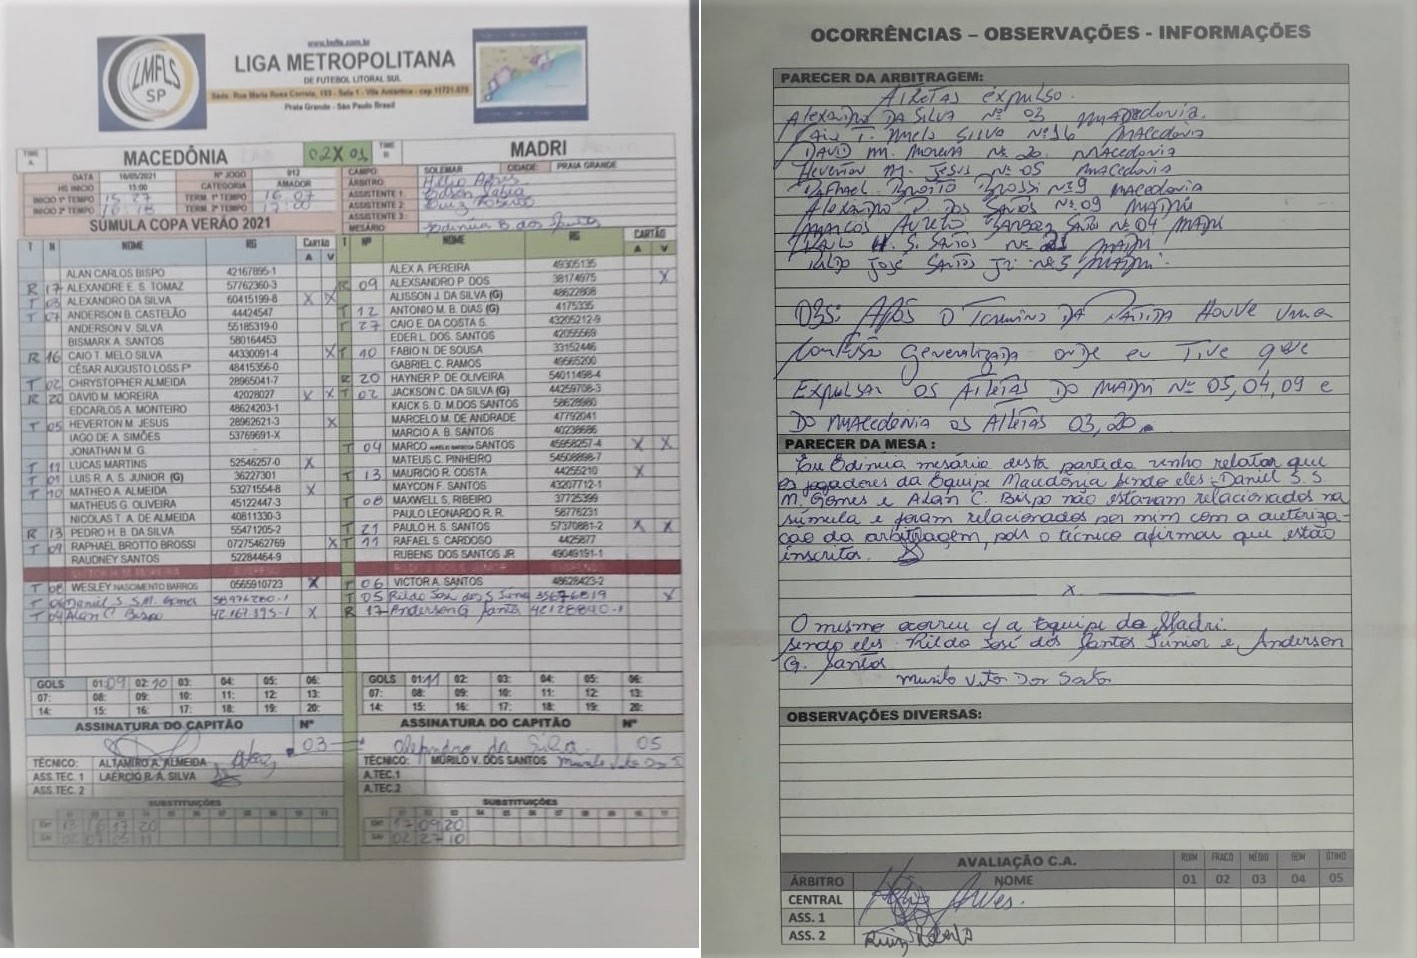 www.lmfls.com.br
LIGA METROPOLITANA
DE FUTEBOL LITORAL SUL
Sede. Rua Maria Rosa Correia, 193 - Sala 1 - Vila Antártica - cep 11721-070
Praia Grande - São Paulo Brasil
LMFLS
SP
TIME A MACEDÔNIA 02X01 TIME B MADRI
DATA 16/05/2021 Nº JOGO 012
HS INICIO 15:00 CATEGORIA AMADOR
INICIO 1º TEMPO 15 27 TERM. 1º TEMPO 16 07
INICIO 2º TEMPO 16 18 TERM. 2º TEMPO 17 00
CAMPO: SOLEMAR CIDADE: PRAIA GRANDE
ÁRBITRO: Hélio Alves
ASSISTENTE 1: Edson Sabia
ASSISTENTE 2: Ruiz Roberto
ASSISTENTE 3:
MESÁRIO: Edinéia B dos Santos
SÚMULA COPA VERÃO 2021
T N NOME RG CARTÃO A V
ALAN CARLOS BISPO 42167895-1
R 17 ALEXANDRE E. S. TOMAZ 57762360-3
T 03 ALEXANDRO DA SILVA 60415199-8 X X
T 07 ANDERSON B. CASTELÃO 44424547
ANDERSON V. SILVA 55185319-0
BISMARK A. SANTOS 580164453
R 16 CAIO T. MELO SILVA 44330091-4 X
CÉSAR AUGUSTO LOSS Fº 48415356-0
T 02 CHRYSTOPHER ALMEIDA 28965041-7
R 20 DAVID M. MOREIRA 42028027 X X
EDCARLOS A. MONTEIRO 48624203-1
T 05 HEVERTON M. JESUS 28962621-3 X
IAGO DE A. SIMÕES 53769691-X
JONATHAN M. G. -
T 11 LUCAS MARTINS 52546257-0 X
T 01 LUIS R. A. S. JUNIOR (G) 36227301
T 10 MATHEO A. ALMEIDA 53271554-8 X
MATHEUS G. OLIVEIRA 45122447-3
NICOLAS T. A. DE ALMEIDA 40811330-3
R 13 PEDRO H. B. DA SILVA 55471205-2
T 09 RAPHAEL BROTTO BROSSI 07275462769 X
RAUDNEY SANTOS 52284464-9
T 08 WESLEY NASCIMENTO BARROS 0565910723 X
Daniel S S.M. Gomes
T 04 Alan C. Bispo 42.167.895-1 X
T Nº NOME RG CARTÃO A V
ALEX A. PEREIRA 49305135
R 09 ALEXSANDRO P. DOS 38174975 X
ALISSON J. DA SILVA (G) 48622808
T 12 ANTONIO M. B. DIAS (G) 4175335
T 27 CAIO E. DA COSTA S. 43205212-9
EDER L. DOS. SANTOS 42055569
T 10 FABIO N. DE SOUSA 33152446
GABRIEL C. RAMOS 49565200
R 20 HAYNER P. DE OLIVEIRA 54011498-4
T 02 JACKSON C. DA SILVA (G) 44259708-3
KAICK S. D. M. DOS SANTOS 58628980
MARCELO M. DE ANDRADE 47792041
MARCIO A. B. SANTOS 40238686
T 04 MARCO AURELIO BARBOZA SANTOS 45958257-4 X X
MATEUS C. PINHEIRO 54508898-7
T 13 MAURICIO R. COSTA 44255210 X
MAYCON F. SANTOS 43207712-1
T 08 MAXWELL S. RIBEIRO 37725399
PAULO LEONARDO R. R. 58776231
T 21 PAULO H. S. SANTOS 57370881-2 X X
T 11 RAFAEL S. CARDOSO 4425877
RUBENS DOS SANTOS JR 49049191-1
T 06 VICTOR A. SANTOS 48628423-2
T 05 Rildo José dos S Junior 35676819 X
R 17 Anderson G Santos 42128840-1
GOLS 01:09 02:10 03: 04: 05: 06:
07: 08: 09: 10: 11: 12: 13:
14: 15: 16: 17: 18: 19: 20:
GOLS 01:11 02: 03: 04: 05: 06:
07: 08: 09: 10: 11: 12: 13:
14: 15: 16: 17: 18: 19: 20:
ASSINATURA DO CAPITÃO Nº
03
ASSINATURA DO CAPITÃO Nº
alexandro da Silva 05
TÉCNICO: ALTAMIRO A. ALMEIDA
ASS. TEC. 1 LAÉRCIO R. A. SILVA
ASS. TEC. 2
TÉCNICO: MURILO V. DOS SANTOS
A.TEC.1
A.TEC.2
SUBSTITUIÇÕES
13 16 17 20
SUBSTITUIÇÕES
17 09 20
02 27 10
OCORRÊNCIAS – OBSERVAÇÕES - INFORMAÇÕES
PARECER DA ARBITRAGEM:
Atletas expulso.
Alexandro DA SILVA Nº 03 macedovia.
Caio T. Melo SILVA Nº 16 MAcedovia
DAVID M. Moreira Nº 20. macedovia
Heverton M. Jesus Nº 05 macedovia
Raphael Brotto Brossi Nº 9 macedovia
Alexandro P. dos Santos Nº 09 MADRI
MARCOS AURELIO Barboza Santos Nº 04 MADRI
Paulo H. S. Santos Nº 21 MADRI
Rildo José Santos Jr. Nº 5 MADRI.
OBS: Após o Termino DA Partida Houve uma
Confusão Generalizada onde eu Tive que
Expulsar os Atletas Do MADRI Nº 05, 04, 09 e
Do macedonia os Atletas 03, 20.
PARECER DA MESA :
Eu Edinéia mesária desta partida venho relatar que
os jogadores da Equipe Macedônia sendo eles: Daniel S. S.
M. Gomes e Alan C. Bispo não estavam relacionados na
súmula e foram relacionados por mim com a autoriza-
ção da arbitragem, pois o técnico afirmou que estão
inscritos.
x
O mesmo ocorreu c/ a Equipe do Madri
sendo eles: Rildo José dos Santos Júnior e Anderson
G. Santos
Murilo Vitor Dos Santos
OBSERVAÇÕES DIVERSAS:
AVALIAÇÃO C.A. RUIM FRACO MÉDIO BOM ÓTIMO
ÁRBITRO NOME 01 02 03 04 05
CENTRAL Hélio Alves.
ASS. 1
ASS. 2 Ruiz Roberto